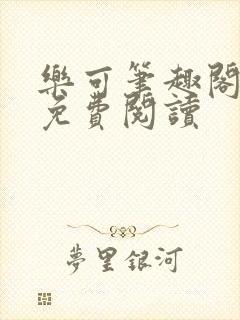 樂可筆趣閣
免費閱讀
夢里銀河